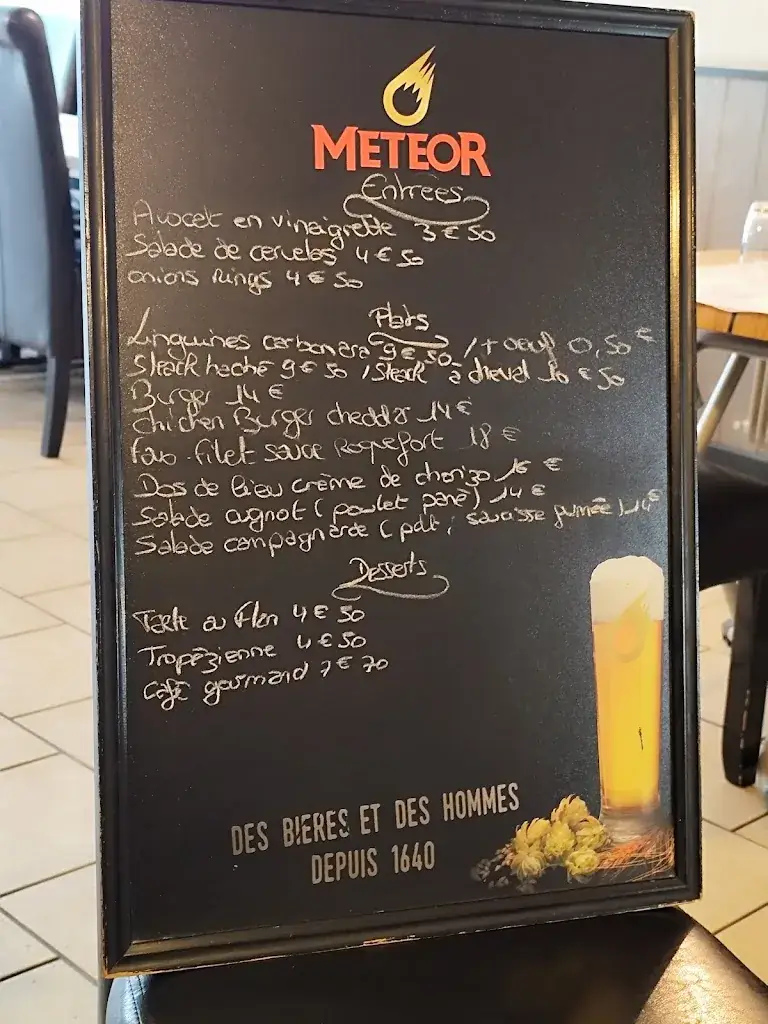 METEOR
Entrées
Avocet en vinaigrette 3€50
Salade de cervelas 4€50
onions Rings 4€50
Plats
Linguines carbonara 9€50 /+ oeuf 0,50€
Steack haché 9€50 / Steack à cheval 10€50
Burger 14€
chicken Burger cheddar 14€
faux-filet sauce Roquefort 18€
Dos de lieu crème de chorizo 16€
Salade (poulet pané) 14€
Salade campagnarde ( saucisse fumée) 14€
Desserts
Tarte au flan 4€50
Tropézienne 4€50
café gourmand 7€70
DES BIERES ET DES HOMMES
DEPUIS 1640